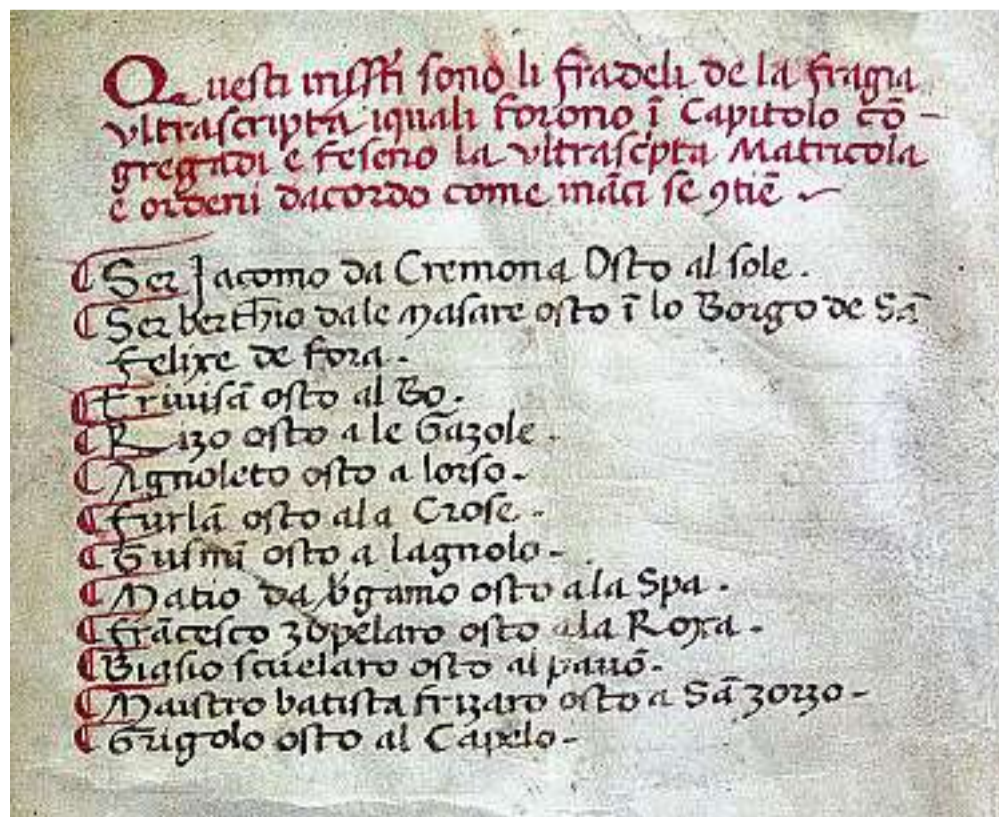 Questi infſtī ſono li fradeli de la fragia
vltraſcripta iquali forono ī Capitolo cō-
gregadi e feſeno la vltraſcpta Matricola
e ordeni dacordo come ināci ſe 9tiē
Ser Jacomo da Cremona Oſto al ſole.
Ser berthio dale Maſare oſto ī lo Borgo de Sā
Felixe de fora.
Triuiſā oſto al Bo.
Rizo oſto a le Gazole.
Agnoleto oſto a lorſo.
Furlā oſto ala Croſe.
Guſmī oſto a lagnolo-
Matio da b̄gamo oſto ala Spa.
Frāceſco zopelaro oſto ala Roxa.
Biaſio ſcuelaro oſto al pauō.
Maiſtro batiſta frizaro oſto a Sā zorzo-
Grigolo oſto al Capelo-